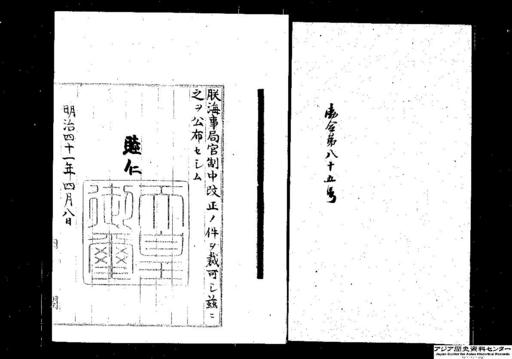 勅令第八十五号
朕海事局官制中改正ノ件ヲ裁可シ茲ニ
之ヲ公布セシム
睦仁
天皇御璽
明治四十一年四月八日
アジア歴史資料センター
Japan Center for Asian Historical Records